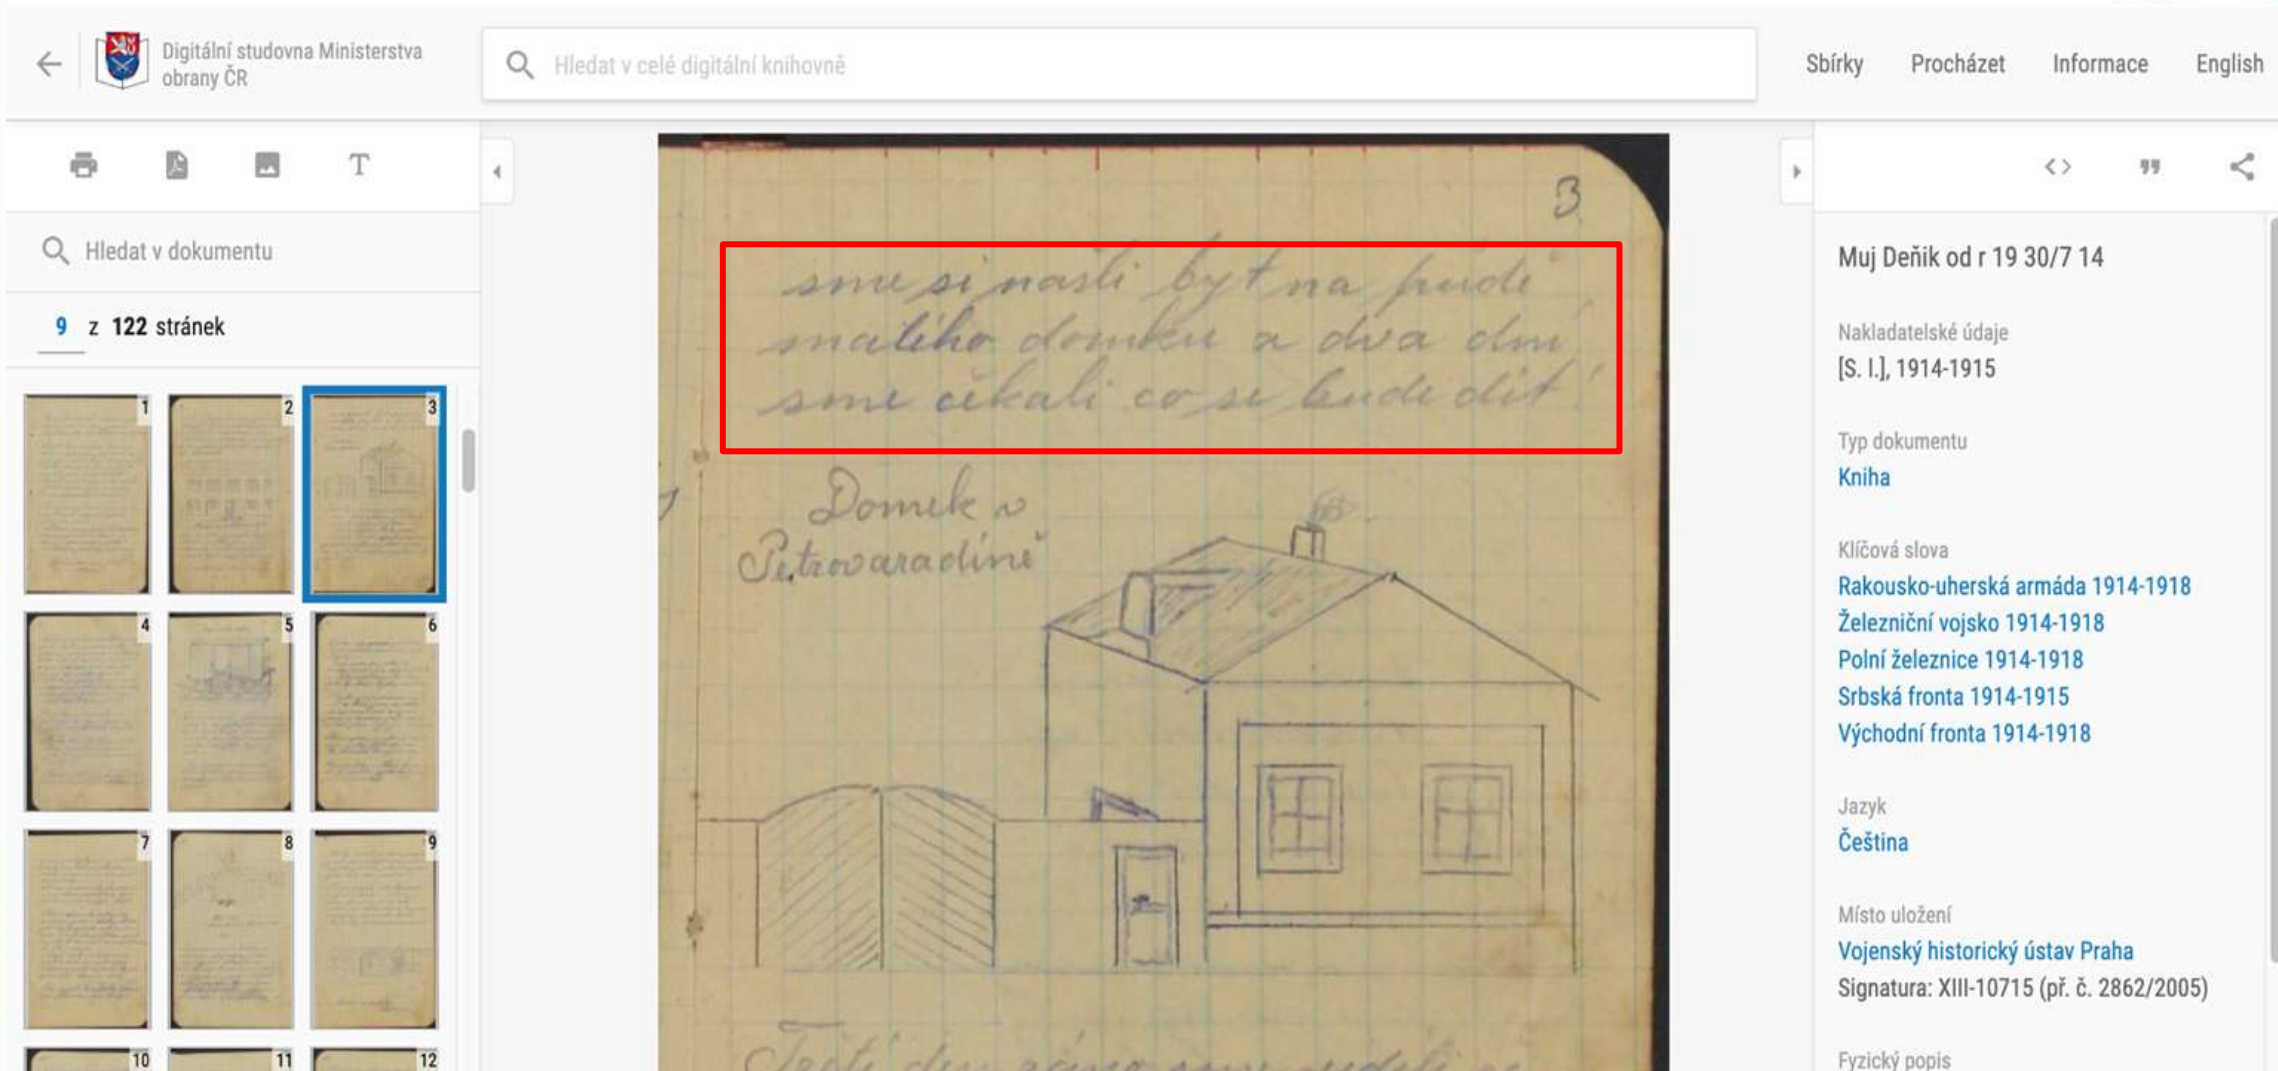 Digitální studovna Ministerstva
obrany ČR
Hledat v celé digitální knihovně
Sbírky
Procházet
Informace
English
T
Hledat v dokumentu
9 z 122 stránek
1
2
3
4
5
6
7
8
9
10
11
12
3
sme si našli byt na pudě
maliho domku a dva dni
sme čekali co se bude dít
Domek v
Petrovaradíně
Třetí den ráno sme
Muj Deňik od r 19 30/7 14
Nakladatelské údaje
[S. l.], 1914-1915
Typ dokumentu
Kniha
Klíčová slova
Rakousko-uherská armáda 1914-1918
Železniční vojsko 1914-1918
Polní železnice 1914-1918
Srbská fronta 1914-1915
Východní fronta 1914-1918
Jazyk
Čeština
Místo uložení
Vojenský historický ústav Praha
Signatura: XIII-10715 (př. č. 2862/2005)
Fyzický popis